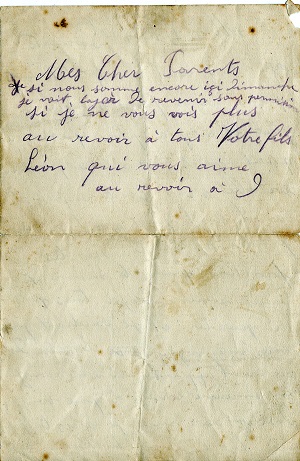 Mes Cher Parents
si nous somme encore içi dimanche
je vait de revenir sans permission
si je ne vous vois plus
au revoir à tous Votre fils
Léon qui vous aime
au revoir à